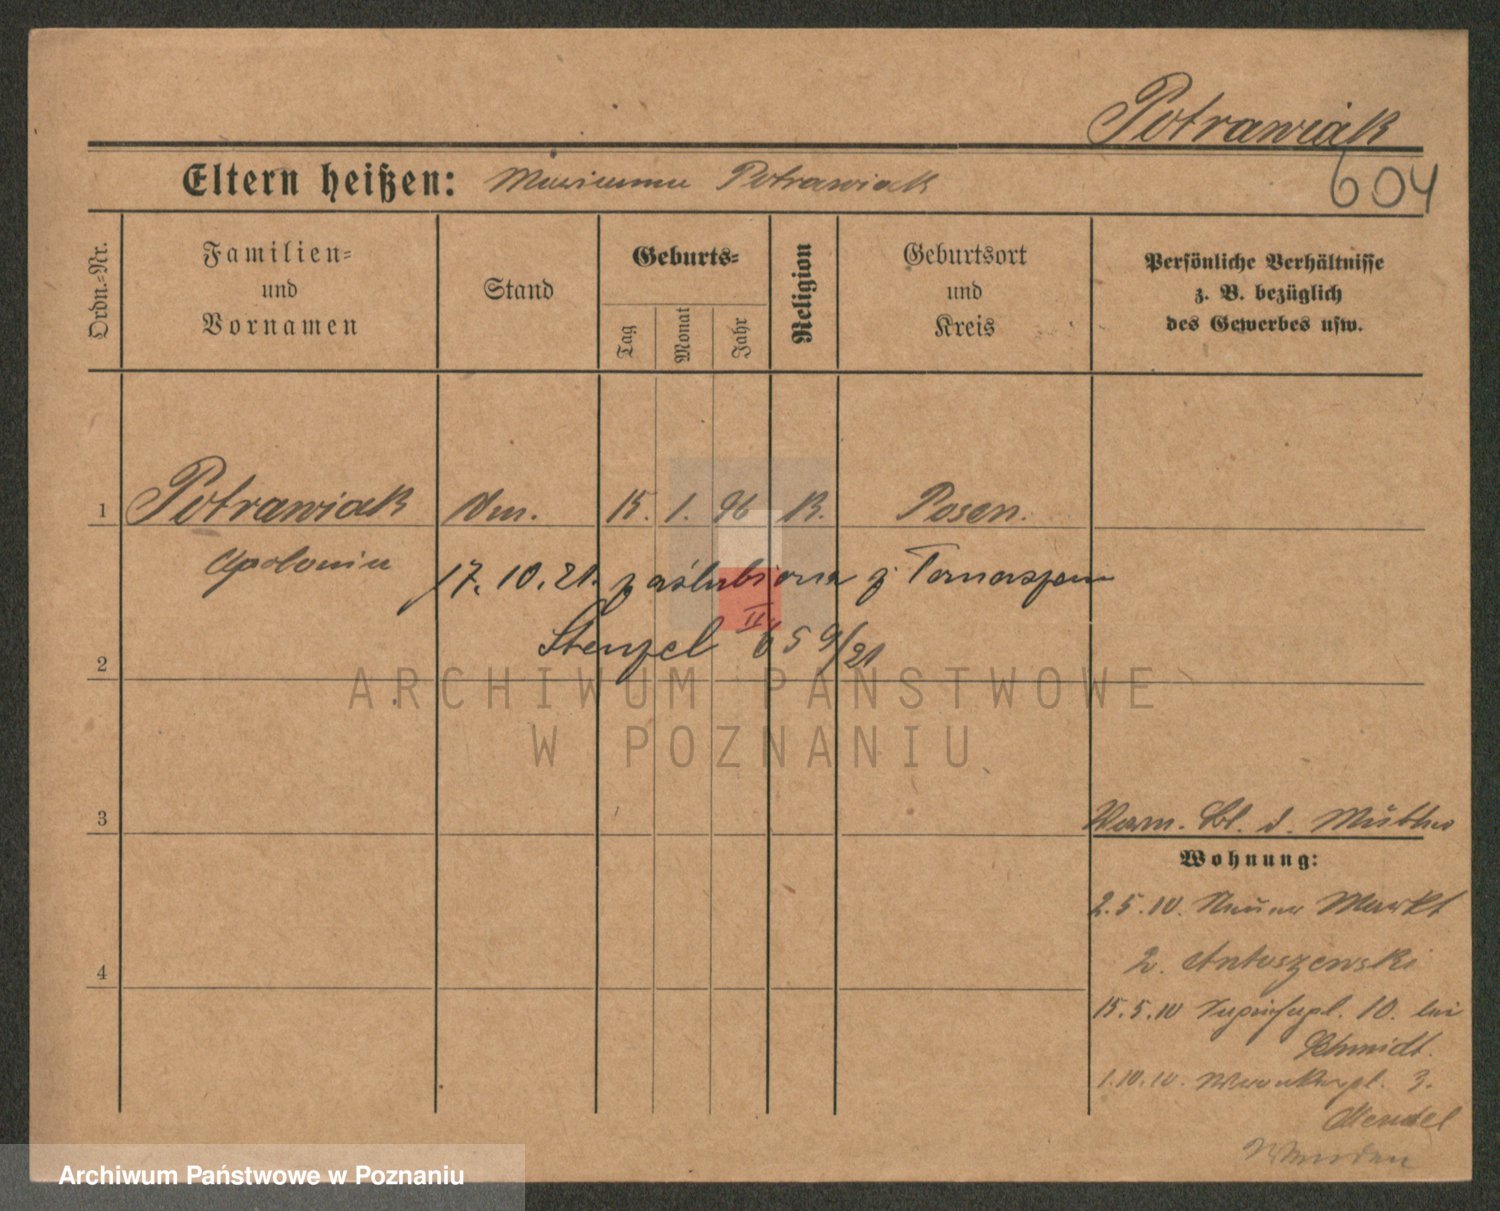 Potrawiak
Eltern heißen: Marianna Potrawiak
604
Ordn.-Nr.
Familien=
und
Vornamen
Stand
Geburts=
Tag
Monat
Jahr
Religion
Geburtsort
und
Kreis
Persönliche Verhältnisse
z. B. bezüglich
des Gewerbes usw.
1 Potrawiak 15. 1. 96 K. Posen.
Apolonia
17. 10. 21. zaślubiona z Tomaszem
Stenzel II 659/21
2
ARCHIWUM PAŃSTWOWE
W POZNANIU
3
Vorm. Bl. d. Mutter
Wohnung:
2.5.10. Neuer Markt
2. Antoszewski
4
15.5.10 10. bei
Schmidt.
1.10.10. 3.
Mendel
Archiwum Państwowe w Poznaniu